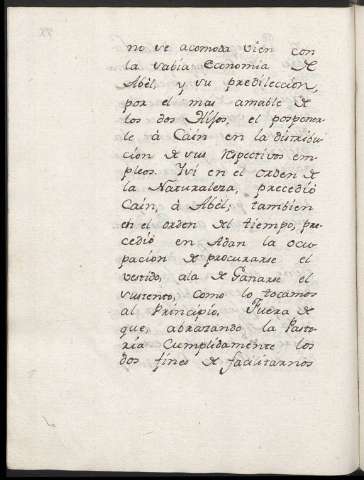 no se acomoda bien con
la sabia Economia de
Abèl, y su predileccion,
por el mas amable de
los dos Hijos, el posponer-
le à Caín en la distribu-
cion de sus respectivos em-
pleos. Y si en el orden de
la Naturaleza, precedió
Caín, à Abèl; tambien
en el orden del tiempo, pre-
cedió en Adan la ocu-
pacion de procurarse el
vestido, ala de Ganarse el
sustento, como lo tocamos
al Principio. Fuera de
que, abrazando la Pasto-
ría Cumplidamente los
dos fines de facilitarnos